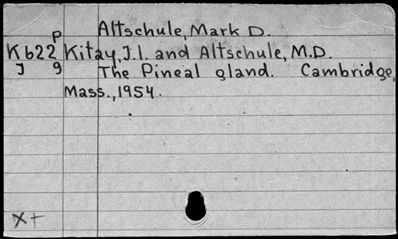 P Altschule, Mark D.
K622 Kitay, J.I. and Altschule, M.D.
J 9 The Pineal gland. Cambridge,
Mass., 1954.
X+